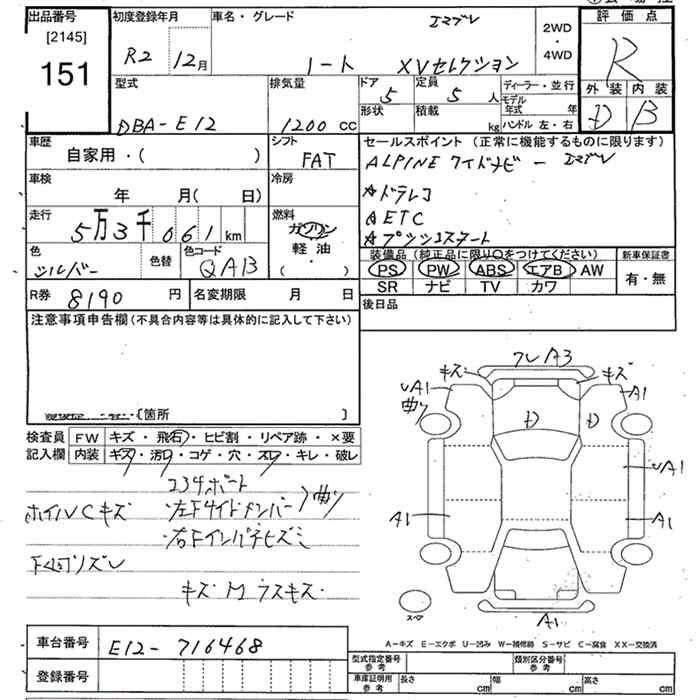 出品番号
[2145]
151
初度登録年月
R2 12月
車名・グレード
ノート XVセレクション
2WD
・
4WD
評価点
R
外装 内装
D B
型式
DBA-E12
排気量
1200 CC
ドア
5
形状
定員
5 人
積載
kg
ディーラー・並行
モデル年式 年
ハンドル 左・右
車歴
自家用・( )
シフト
FAT
セールスポイント (正常に機能するものに限ります)
ALPINE ワイドナビ ー エマブレ
☆ドラレコ
☆ETC
☆プッシュスタート
車検
年 月( 日)
冷房
走行
5万3千061km
燃料
ガソリン
軽・油
( ・ )
色
シルバー
色替
色コード
QAB
装備品 (純正品に限り○をつけてください)
PS PW ABS エアB AW
SR ナビ TV カワ
新車保証書
有・無
R券 8190 円
名変期限 月 日
後日品
注意事項申告欄 (不具合内容等は具体的に記入して下さい)
[箇所 ]
検査員 FW キズ・飛石・ヒビ割・リペア跡・×要
記入欄 内装 キズ・汚れ・コゲ・穴・スレ・キレ・破レ
ホイルCキズ
キズ
A1
D
D
A1
A1
A1
スペア
A1
A=キズ E=エクボ U=凹み W=補修跡 S=サビ C=腐食 XX=交換済
車台番号 E12-716468
登録番号
型式指定番号
参考
類別区分番号
参考
車庫証明用
参考
長さ cm
幅 cm
高さ cm